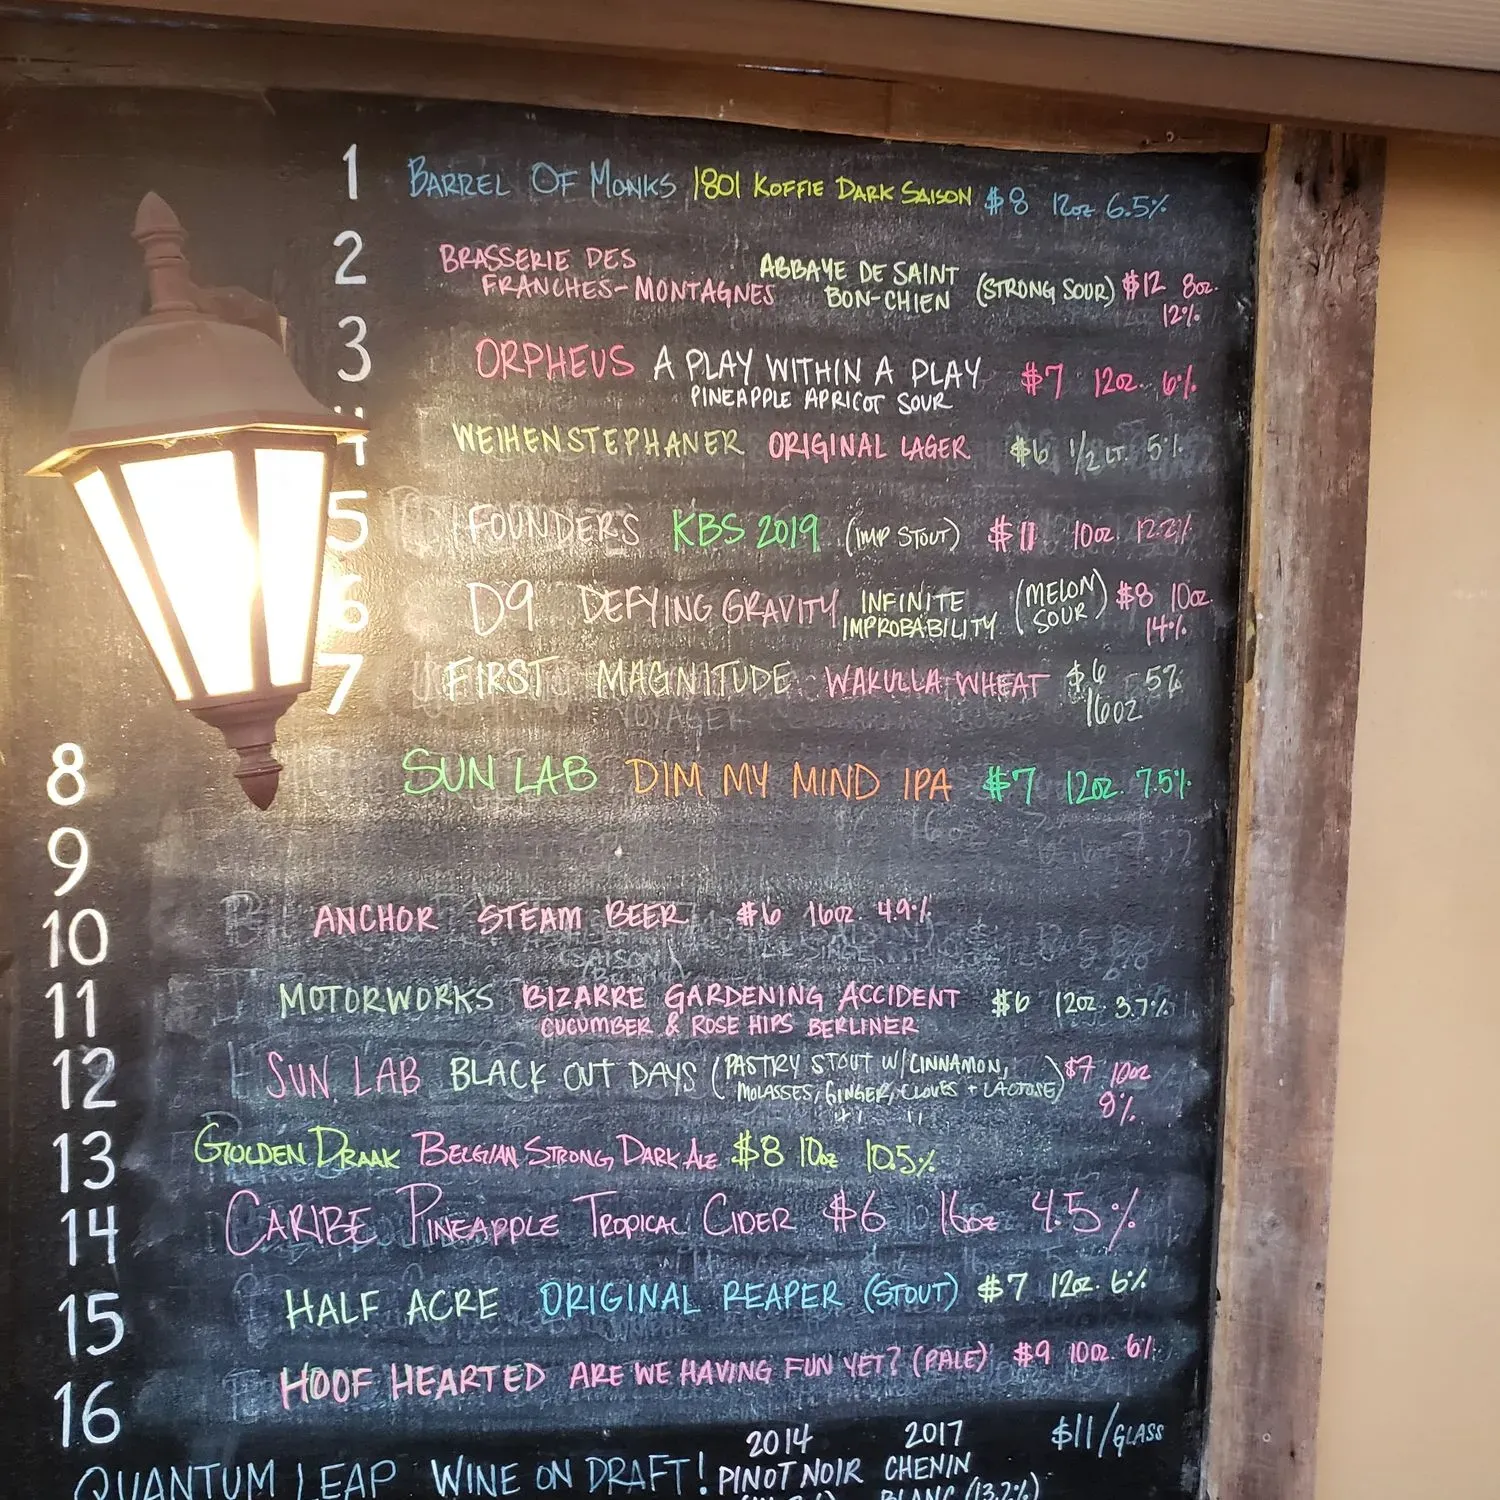 1 BARREL OF MONKS 1801 KOFFIE DARK SAISON $8 12oz 6.5%
2 BRASSERIE DES FRANCHES-MONTAGNES ABBAYE DE SAINT BON-CHIEN (STRONG SOUR) $12 8oz. 12%
3 ORPHEUS A PLAY WITHIN A PLAY $7 12oz. 6%
PINEAPPLE APRICOT SOUR
4 WEIHENSTEPHANER ORIGINAL LAGER $6 1/2 LT. 5%
5 FOUNDERS KBS 2019 (IMP STOUT) $11 10oz. 12.2%
6 D9 DEFYING GRAVITY INFINITE IMPROBABILITY (MELON SOUR) $8 10oz. 14%
7 FIRST MAGNITUDE WAKULLA WHEAT $6 16oz 5%
8 SUN LAB DIM MY MIND IPA $7 12oz. 7.5%
9
10 ANCHOR STEAM BEER $6 16oz. 4.9%
11 MOTORWORKS BIZARRE GARDENING ACCIDENT $6 12oz. 3.7%
CUCUMBER & ROSE HIPS BERLINER
12 SUN LAB BLACK OUT DAYS (PASTRY STOUT W/CINNAMON, MOLASSES, GINGER, CLOVES + LACTOSE) $7 10oz
13 GOLDEN DRAAK BELGIAN STRONG DARK ALE $8 10oz 10.5%
14 CARIBE PINEAPPLE TROPICAL CIDER $6 16oz 4.5%
15 HALF ACRE ORIGINAL REAPER (STOUT) $7 12oz. 6%
16 HOOF HEARTED ARE WE HAVING FUN YET? (PALE) $9 10oz. 6%
QUANTUM LEAP WINE ON DRAFT! 2014 PINOT NOIR 2017 CHENIN BLANC (13.2%) $11/GLASS